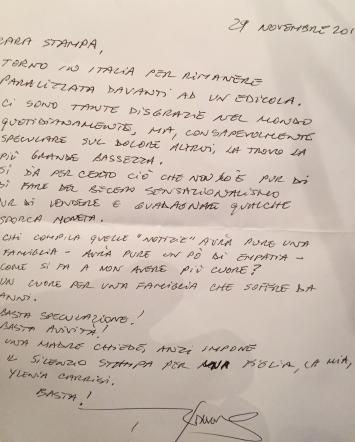 29 NOVEMBRE 201
CARA STAMPA,
TORNO IN ITALIA PER RIMANERE
PARALIZZATA DAVANTI AD UN EDICOLA.
CI SONO TANTE DISGRAZIE NEL MONDO
QUOTIDIANAMENTE, MA, CONSAPEVOLMENTE
SPECULARE SUL DOLORE ALTRUI, LA TROVO LA
PIÙ GRANDE BASSEZZA.
SI DA PER CERTO CIÒ CHE NON LO È PUR DI
DI FARE DEL BECERO SENSAZIONALISMO
UR DI VENDERE E GUADAGNARE QUALCHE
SPORCA MONETA.
CHI COMPILA QUELLE "NOTIZIE" AVRÀ PURE UNA
FAMIGLIA - AVRÀ PURE UN PÒ DI EMPATIA -
COME SI FA A NON AVERE PIÙ CUORE?
UN CUORE PER UNA FAMIGLIA CHE SOFFRE DA
ANNI.
BASTA SPECULAZIONE!
BASTA AVIDITÀ!
UNA MADRE CHIEDE, ANZI IMPONE
IL SILENZIO STAMPA PER UNA FIGLIA, LA MIA,
YLENIA CARRISI.
BASTA!